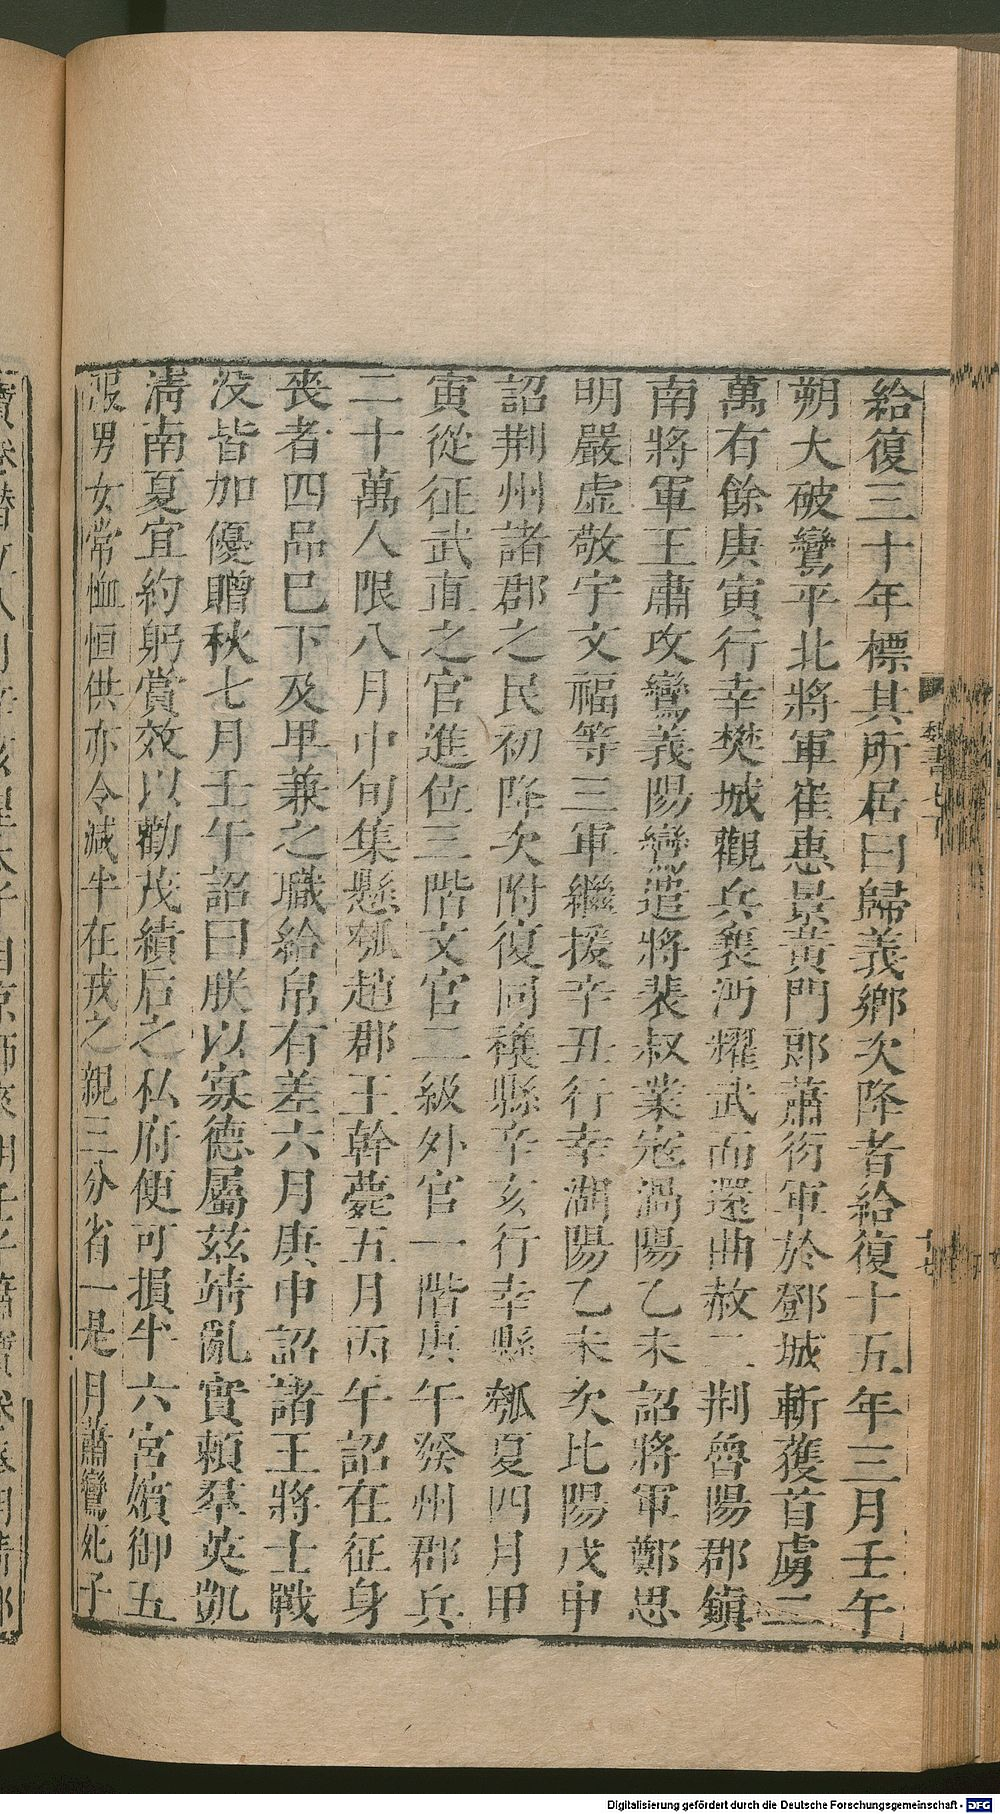 給復三十年標其所居曰歸義鄉次降者給復十五年三月壬午
朔大破鸞平北將軍崔惠景黃門郎蕭衍軍於鄧城斬獲首虜二
萬有餘庚寅行幸樊城觀兵襄沔耀武而還曲赦二荆魯陽郡鎮
南將軍王肅攻鸞義陽鸞遣將裴叔業寇渦陽乙未詔將軍鄭思
明嚴虛敬宇文福等三軍繼援辛丑行幸湖陽乙未次比陽戊申
詔荆州諸郡之民初降次附復同穰縣辛亥行幸縣瓠夏四月甲
寅從征武直之官進位三階文官二級外官一階庚午發州郡兵
二十萬人限八月中旬集懸瓠趙郡王幹薨五月丙午詔在征身
喪者四品已下及卑兼之職給帛有差六月庚申詔諸王將士戰
没皆加優贈秋七月壬午詔曰朕以寡德屬茲靖亂實賴羣英凱
清南夏宜約躬賞效以勸茂績后之私府便可損半六宮嬪御五
服男女常恤恒供亦令減半在戎之親三分省一是月蕭鸞死子
魏書七下
Digitalisierung gefördert durch die Deutsche Forschungsgemeinschaft - DFG